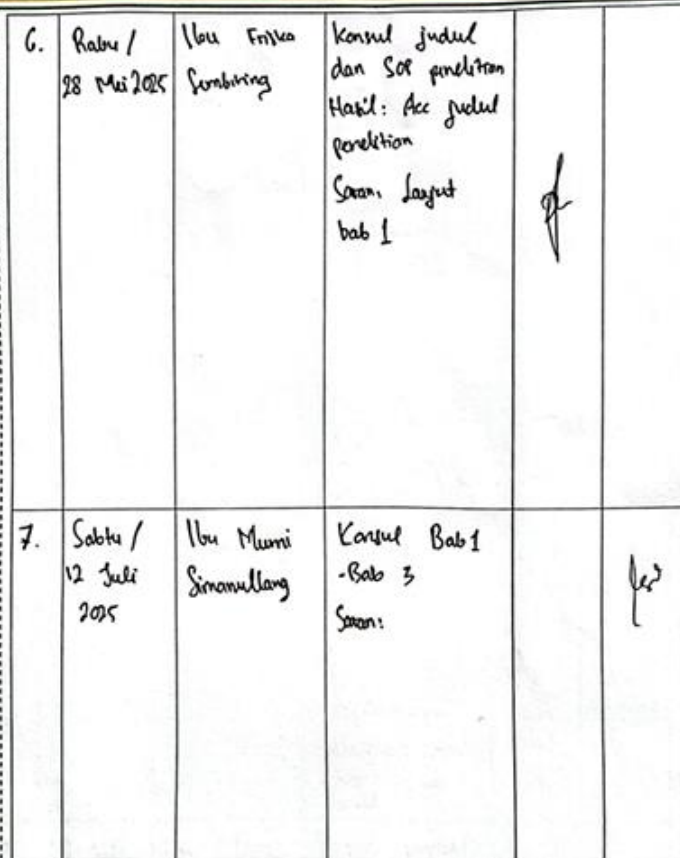 6.
Rabu /
28 Mei 2025
Ibu Friska
Sembiring
Konsul judul
dan SOP penelitian
Hasil: Acc judul
penelitian
Saran: Lanjut
bab 1
7.
Sabtu /
12 Juli
2025
Ibu Murni
Simanullang
Konsul Bab 1
-Bab 3
Saran: